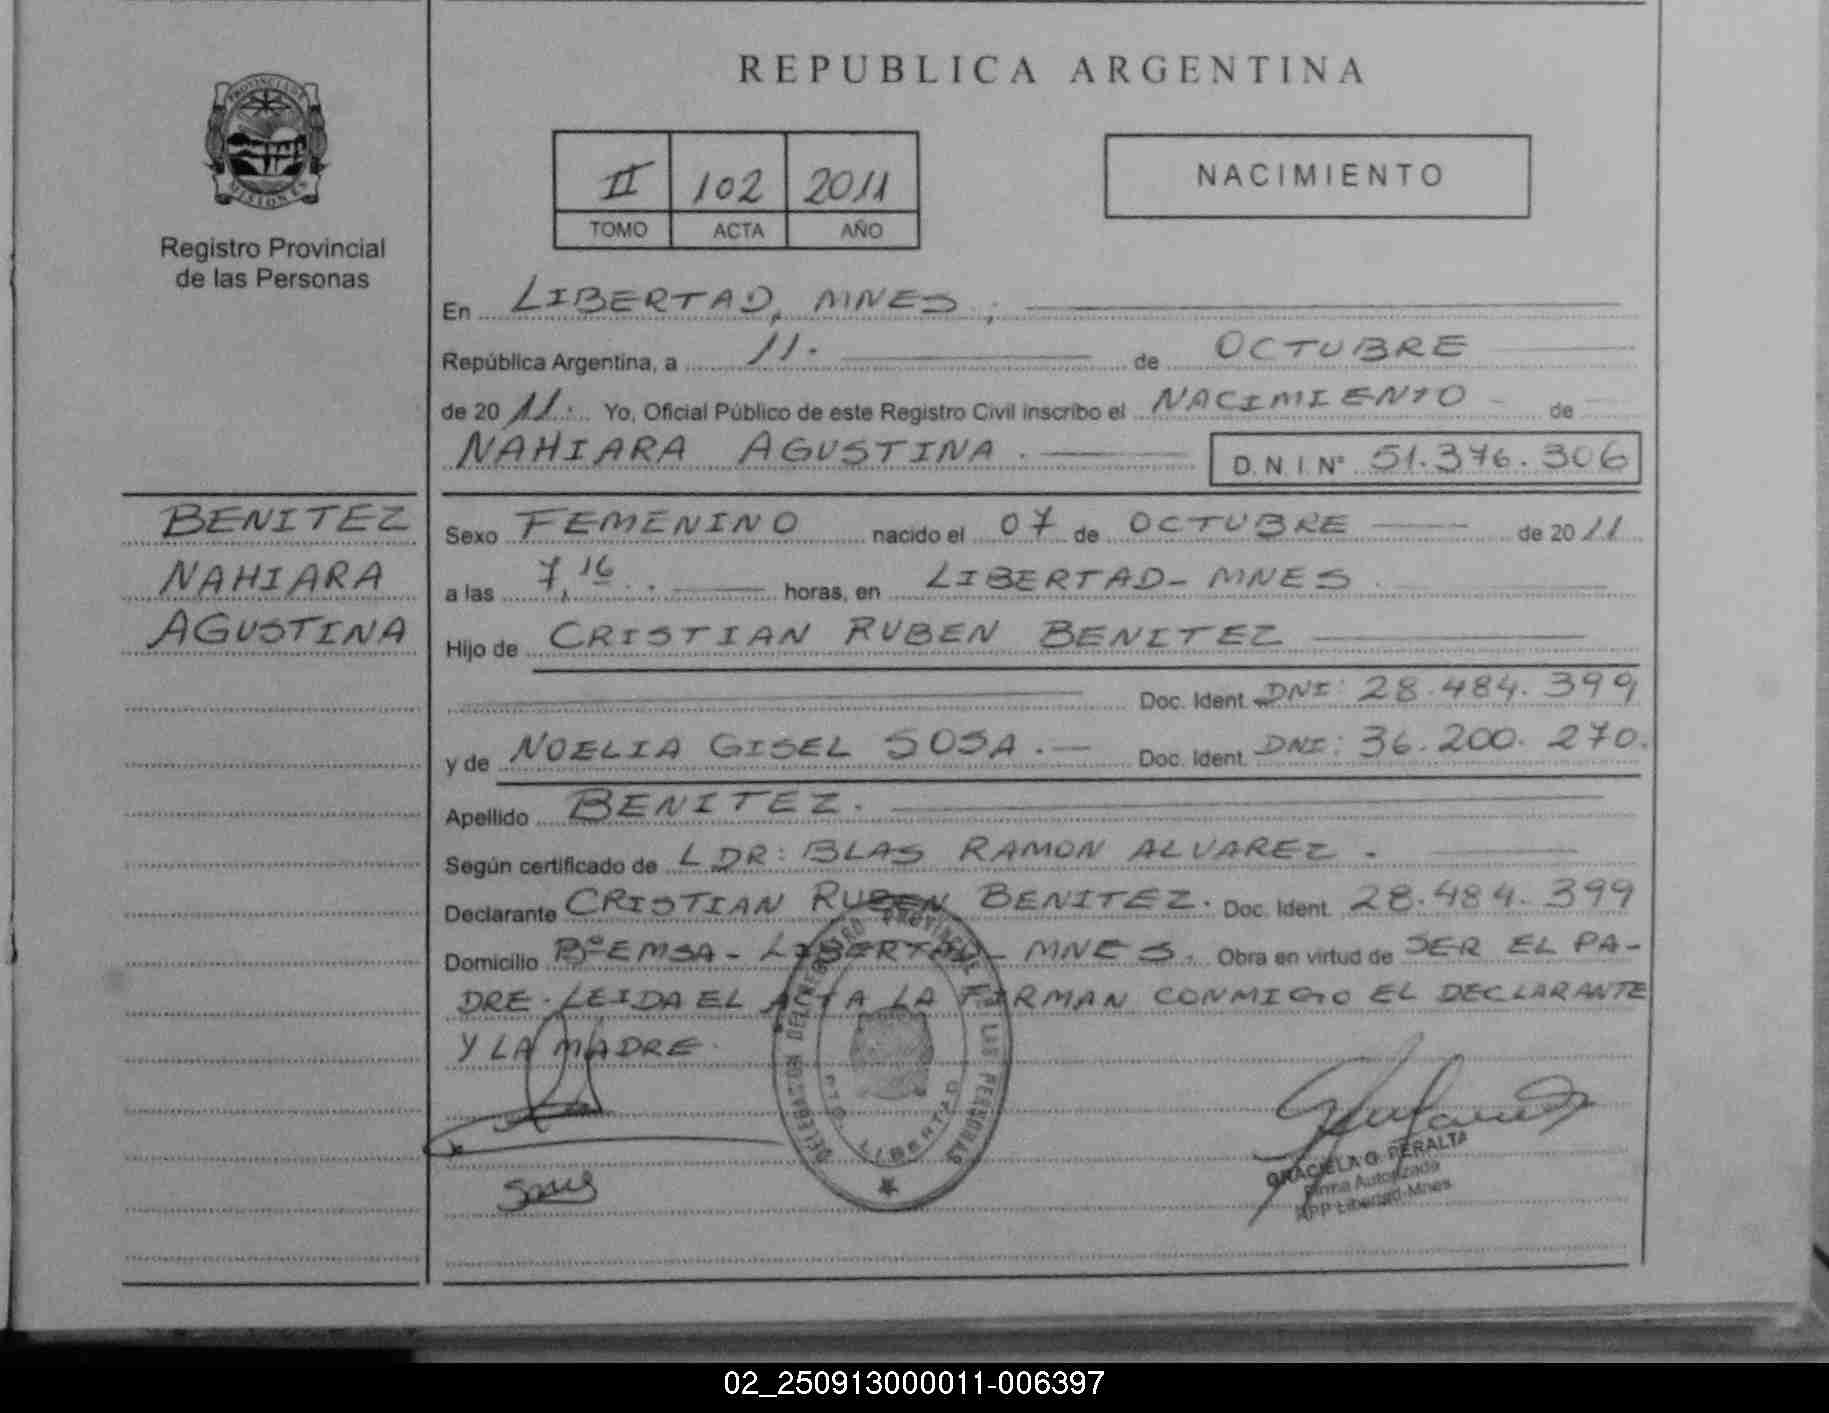 REPUBLICA ARGENTINA
PROVINCIA DE
MISIONES
Registro Provincial
de las Personas
II 102 2011
TOMO ACTA AÑO
NACIMIENTO
En LIBERTAD, MNES,
República Argentina, a 11. de OCTUBRE
de 2011. Yo, Oficial Público de este Registro Civil inscribo el NACIMIENTO de
NAHIARA AGUSTINA. D.N.I. Nº 51.376.306
BENITEZ
NAHIARA
AGUSTINA
Sexo FEMENINO nacido el 07 de OCTUBRE de 2011
a las 7,16. horas, en LIBERTAD-MNES
Hijo de CRISTIAN RUBEN BENITEZ
Doc. Ident. DNI: 28.484.399
y de NOELIA GISEL SOSA. Doc. Ident. DNI: 36.200.270.
Apellido BENITEZ.
Según certificado de LDR: BLAS RAMON ALVAREZ.
Declarante CRISTIAN RUBEN BENITEZ. Doc. Ident. 28.484.399
Domicilio Bº EMSA - LIBERTAD - MNES. Obra en virtud de SER EL PA-
DRE. LEIDA EL ACTA LA FIRMAN CONMIGO EL DECLARANTE
Y LA MADRE.
DELEGACION DEL REGISTRO PROVINCIAL DE LAS PERSONAS
PTO. LIBERTAD
GRACIELA G. PERALTA
Firma Autorizada
RPP Libertad-Mnes
02_250913000011-006397